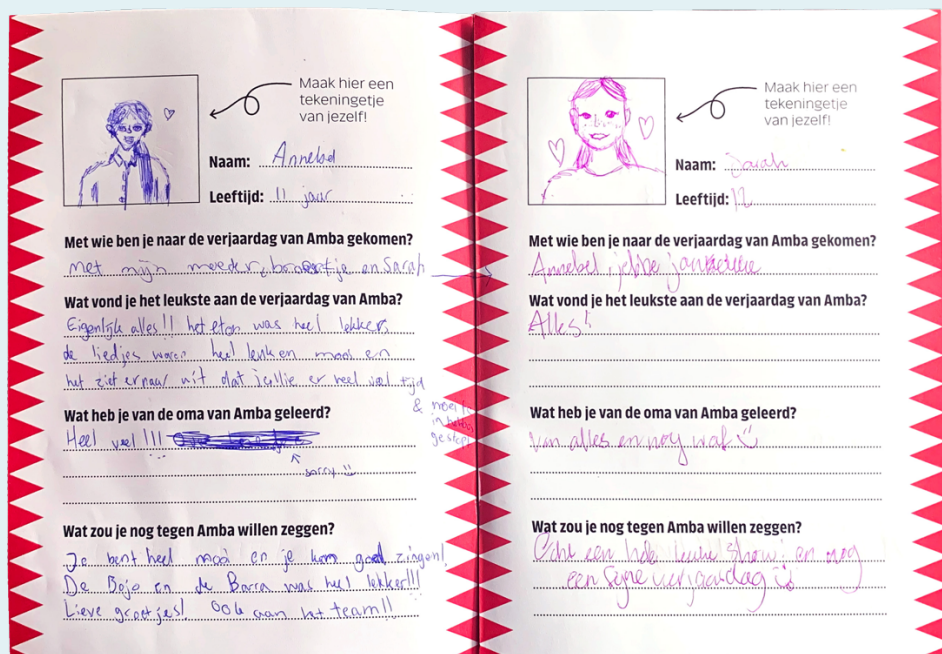 Maak hier een
tekeningetje
van jezelf!
Naam: Annebel
Leeftijd: 11 jaar
Met wie ben je naar de verjaardag van Amba gekomen?
met mijn moeder, broertje en Sarah
Wat vond je het leukste aan de verjaardag van Amba?
Eigenlijk alles!! het eten was heel lekker
de liedjes waren heel leuk en mooi en
het ziet ernaar uit dat jullie er heel veel tijd
& moeite
in hebben
gestopt
Wat heb je van de oma van Amba geleerd?
Heel veel!!!
sorry
Wat zou je nog tegen Amba willen zeggen?
Je bent heel mooi en je kan goed zingen!
De Bojo en de Barra was heel lekker!!!
Lieve groetjes! Ook aan het team!!
Maak hier een
tekeningetje
van jezelf!
Naam: Sarah
Leeftijd: 12
Met wie ben je naar de verjaardag van Amba gekomen?
Annebel, jelibe
Wat vond je het leukste aan de verjaardag van Amba?
Alles!
Wat heb je van de oma van Amba geleerd?
Van alles en nog wat
Wat zou je nog tegen Amba willen zeggen?
Echt een hele leuke show! en nog
een fijne verjaardag